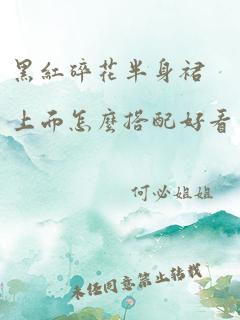 黑紅碎花半身裙
上而怎麼搭配好看
何必姐姐
未经同意禁止转载